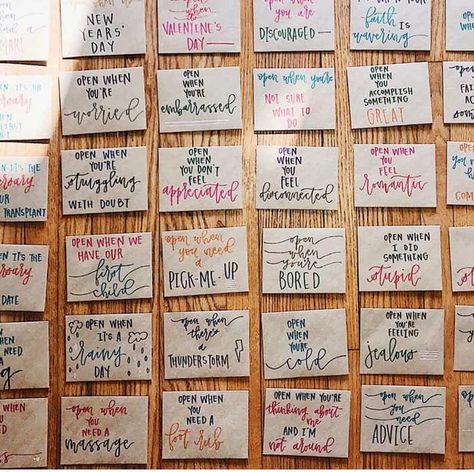 NEW
YEARS'
DAY
open when
VALENTINE'S
DAY
you are
DISCOURAGED
faith is
wavering
OPEN WHEN
YOU'RE
worried
OPEN
WHEN
YOU'RE
embarrassed
open when you're
NOT SURE
WHAT TO
DO
OPEN
WHEN
YOU
ACCOMPLISH
SOMETHING
GREAT
IT'S THE
TRANSPLANT
OPEN WHEN
YOU'RE
struggling
WITH DOUBT
OPEN WHEN
YOU DON'T
FEEL
appreciated
OPEN
WHEN
YOU
FEEL
disconnected
OPEN WHEN
YOU
FEEL
romantic
IT'S THE
DATE
OPEN WHEN WE
HAVE OUR
first
child
open when
YOU NEED A
PICK-ME-UP
open when
you're
BORED
OPEN WHEN
I DID
SOMETHING
stupid
WHEN
NEED A
OPEN WHEN
IT'S A
rainy
DAY
open when
there's
A
THUNDERSTORM
OPEN
WHEN
YOU'RE
cold
OPEN WHEN
YOU'RE
FEELING
jealous
OPEN WHEN
NEED
open when
YOU
NEED A
massage
OPEN WHEN
YOU
NEED A
foot rub
OPEN WHEN YOU'RE
thinking about
me
AND I'M
not around
open when
you
need
ADVICE